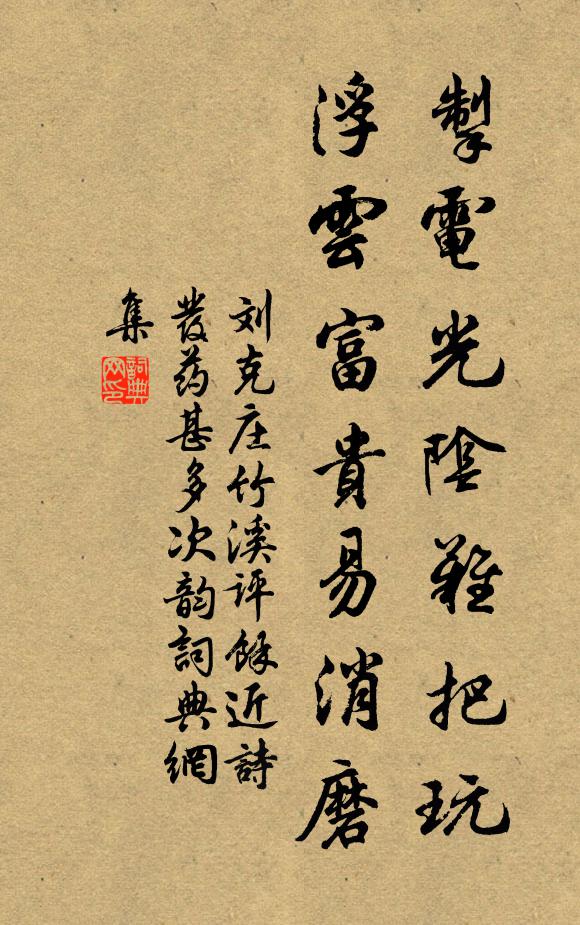 掣電光陰難把玩
浮雲富貴易消磨
刘克庄竹溪评馀近詩
發药甚多次韵詞典網
集
詞典网印